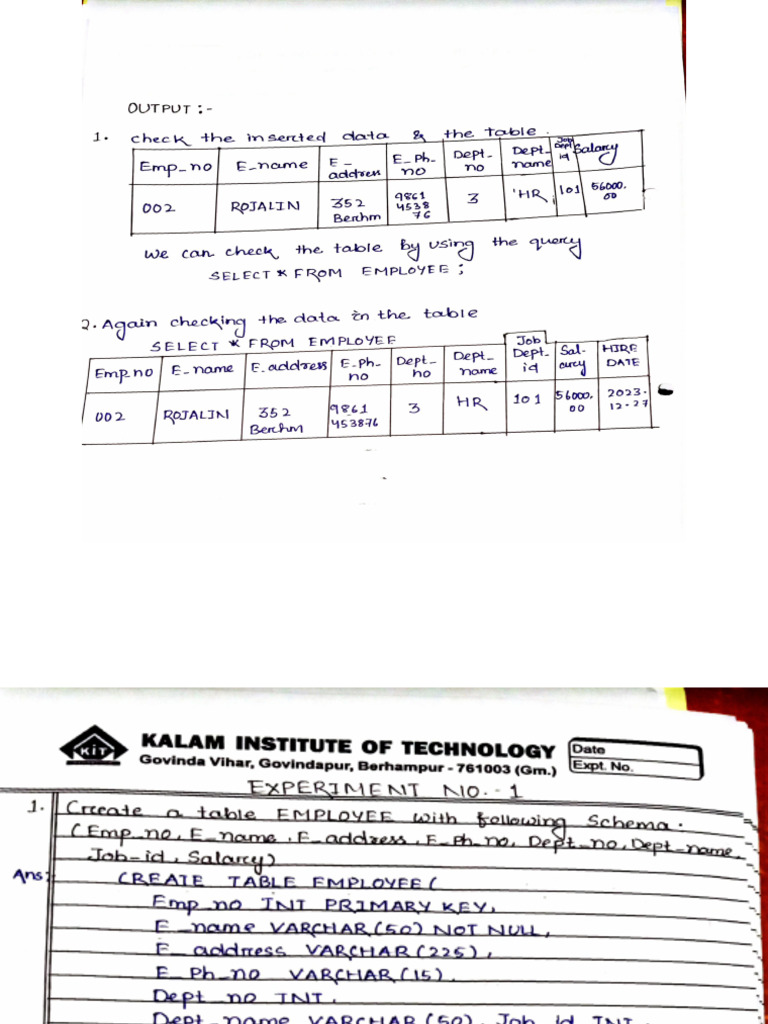 OUTPUT :-
1. check the inserted data & the table.
Emp_no E_name E_address E_Ph_no Dept_no Dept_name Job Dept id Salary
002 ROJALIN 352 Berhm 9861 4538 76 3 HR 101 56000.00
we can check the table by using the query
SELECT * FROM EMPLOYEE ;
2. Again checking the data in the table
SELECT * FROM EMPLOYEE
Emp_no E_name E_address E_Ph_no Dept_no Dept_name Job Dept_id Salary HIRE DATE
002 ROJALIN 352 Berhm 9861 453876 3 HR 101 56000.00 2023-12-27
KIT
KALAM INSTITUTE OF TECHNOLOGY
Govinda Vihar, Govindapur, Berhampur - 761003 (Gm.)
Date
Expt. No.
EXPERIMENT NO. - 1
1. Create a table EMPLOYEE with following Schema.
(Emp_no, E_name, E_address, E_Ph_no, Dept_no, Dept_name,
Job-id, Salary)
Ans: CREATE TABLE EMPLOYEE(
Emp_no INT PRIMARY KEY,
E_name VARCHAR(50) NOT NULL,
E_address VARCHAR(225),
E_Ph_no VARCHAR(15),
Dept_no INT,
Dept_name VARCHAR(50), Job_id INT,